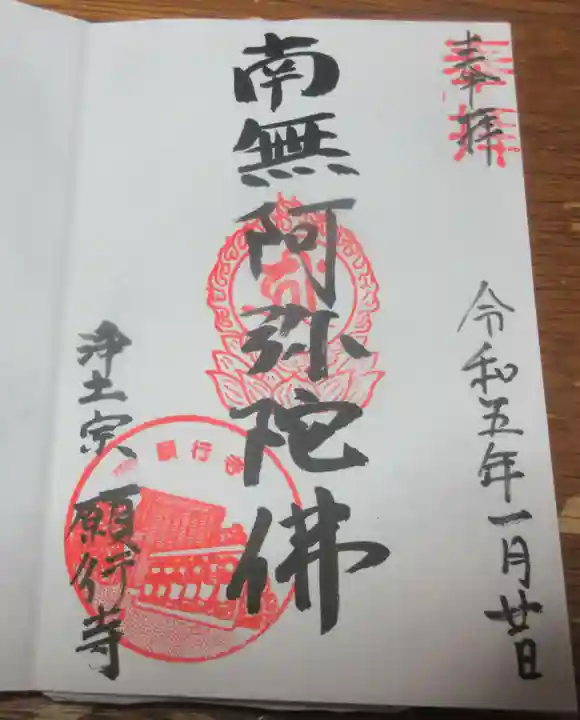 奉拝
令和五年一月廿日
南無阿弥陀佛
浄土宗 願行寺
願行寺